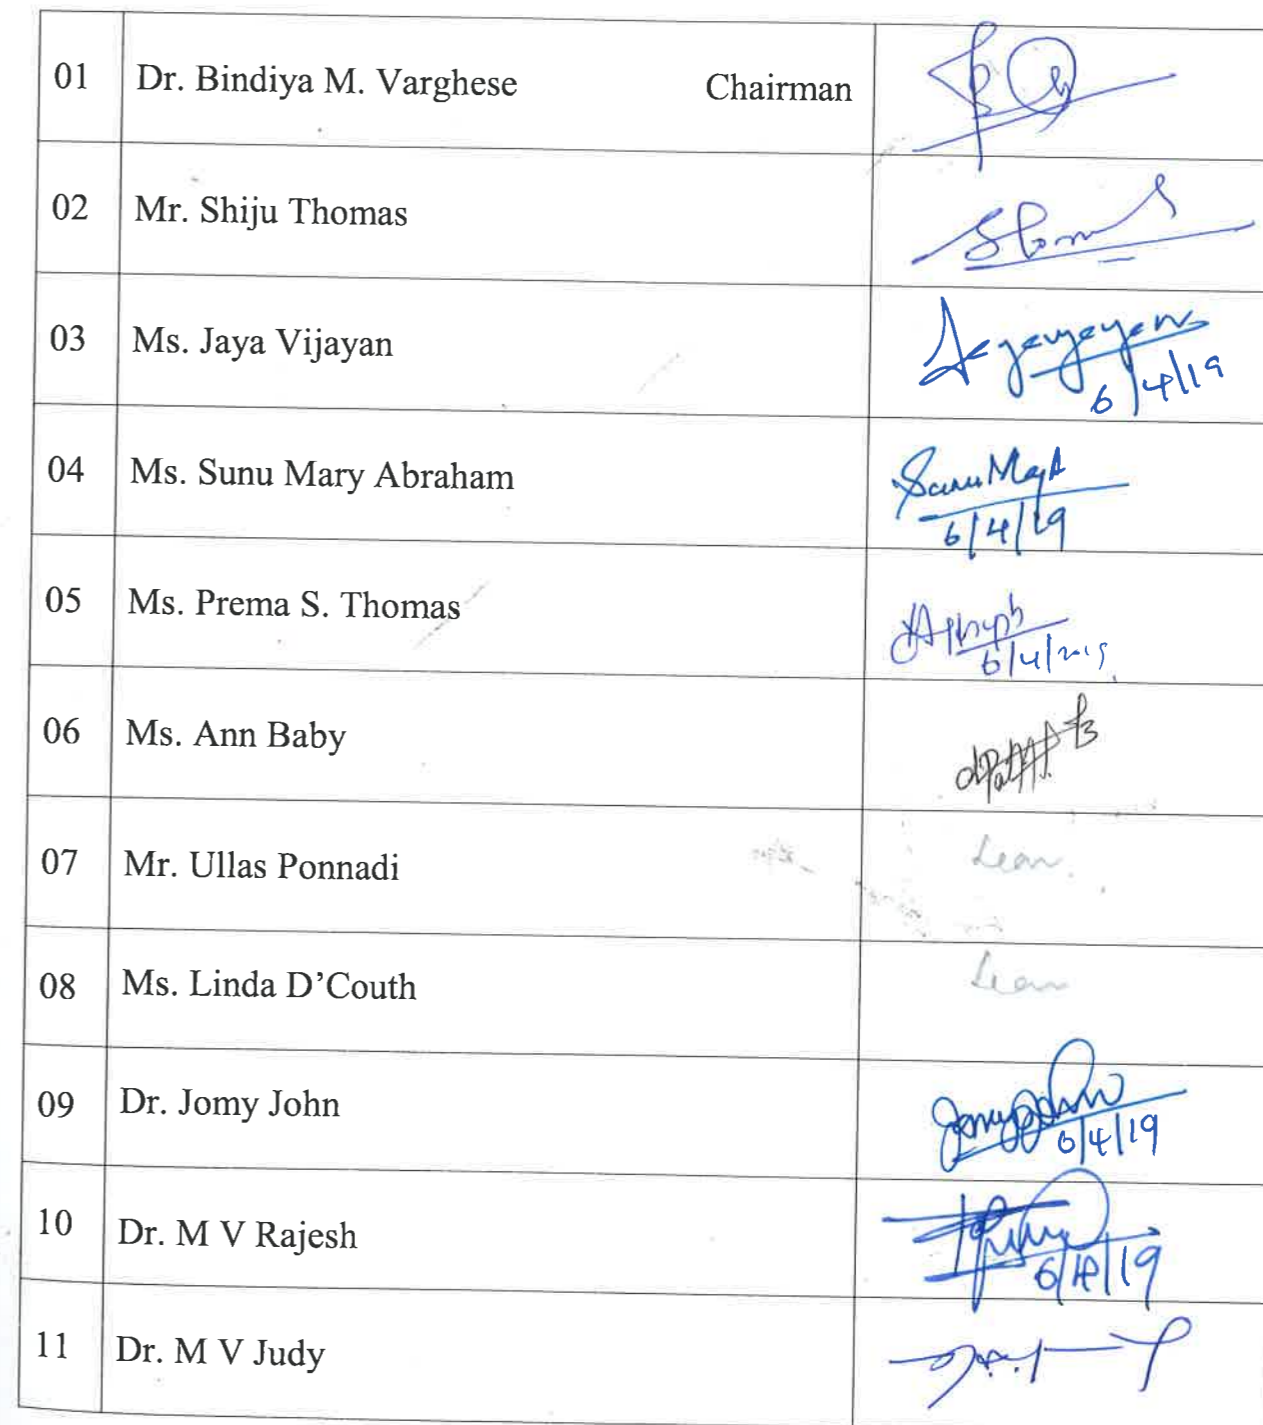 01 Dr. Bindiya M. Varghese Chairman
02 Mr. Shiju Thomas
03 Ms. Jaya Vijayan
6/4/19
04 Ms. Sunu Mary Abraham
6/4/19
05 Ms. Prema S. Thomas
6/4/2019
06 Ms. Ann Baby
07 Mr. Ullas Ponnadi
08 Ms. Linda D’Couth
09 Dr. Jomy John
6/4/19
10 Dr. M V Rajesh
6/4/19
11 Dr. M V Judy